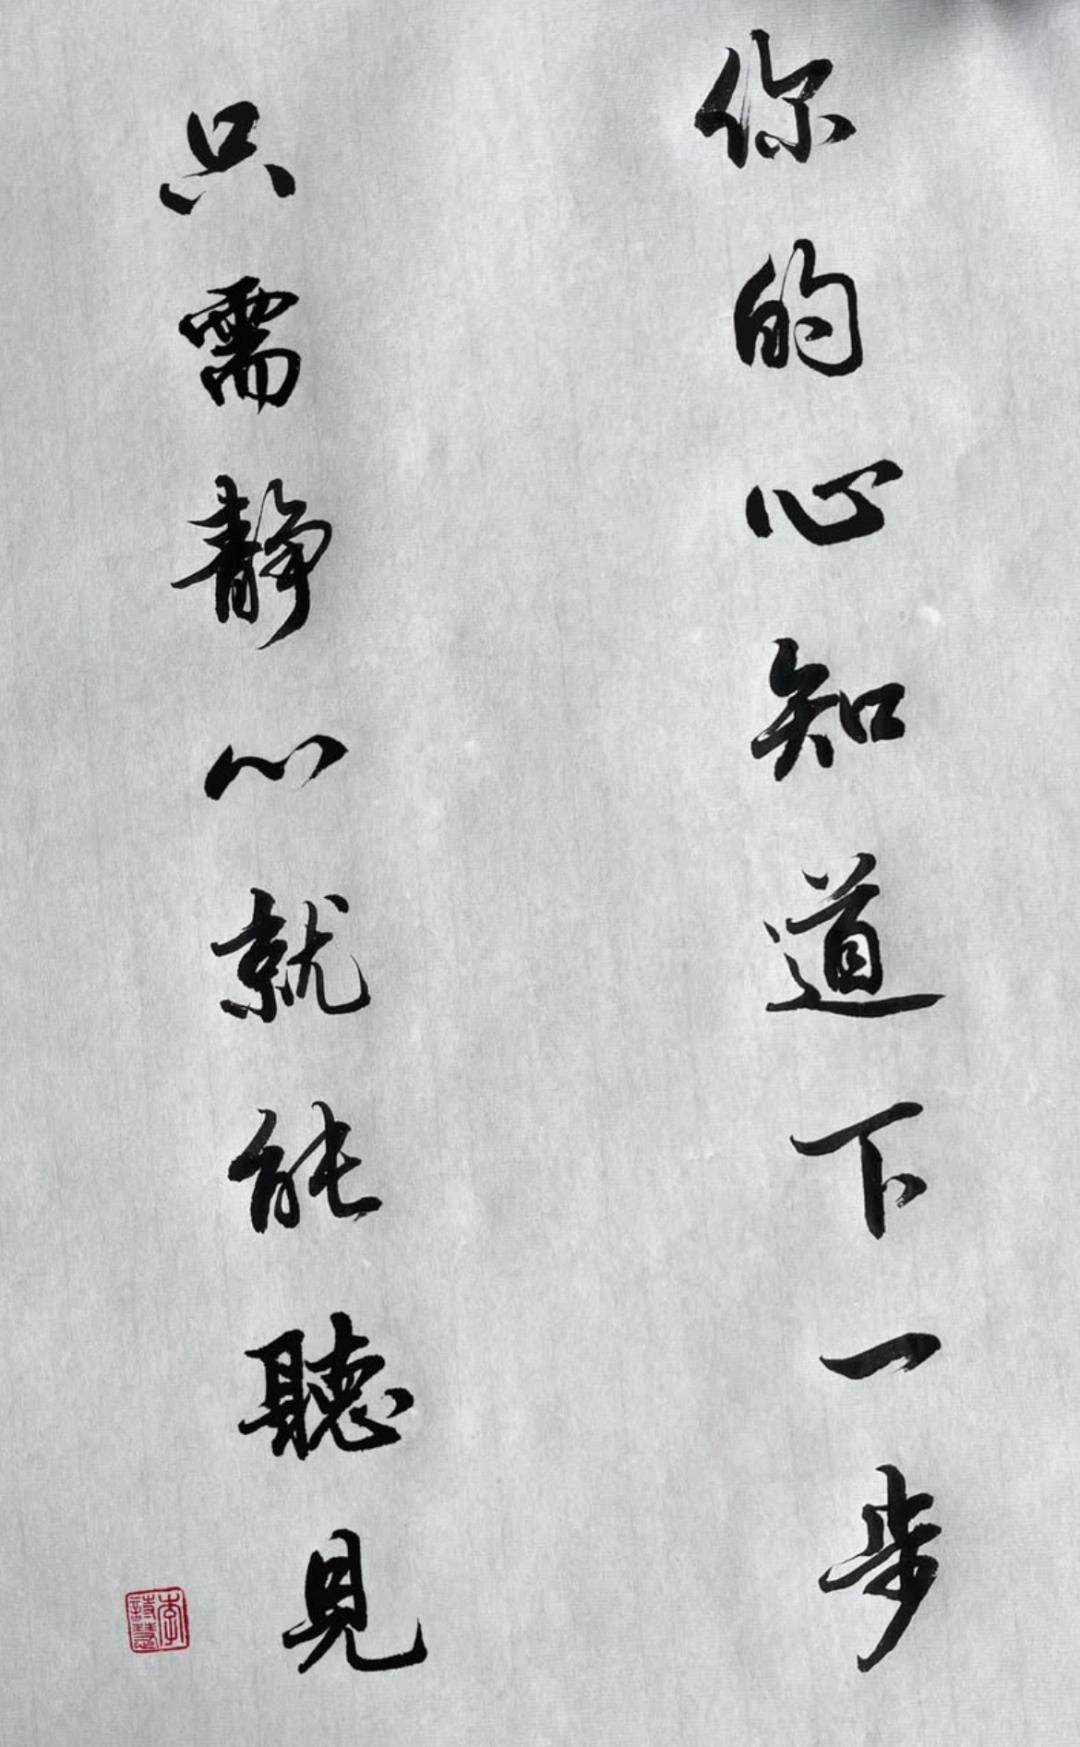 你的心知道下一步
只需靜心就能聽見
李詩慧